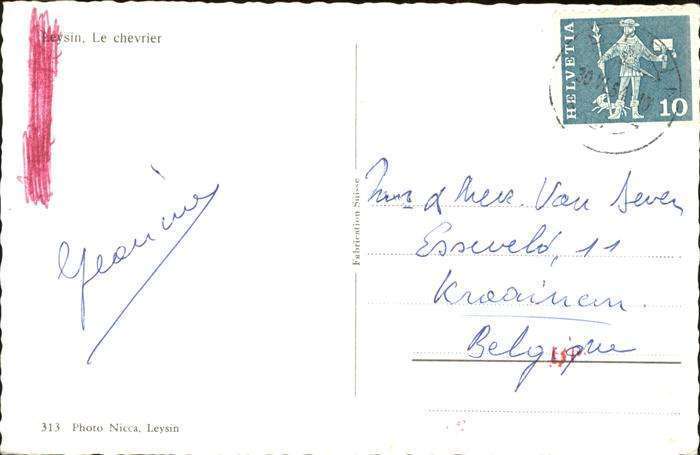 Leysin, Le chevrier
HELVETIA
10
Geanine
Fabrication Suisse
& Mev. Van Deven
Esseveld, 11
Kraainem.
Belgique
313 Photo Nicca, Leysin